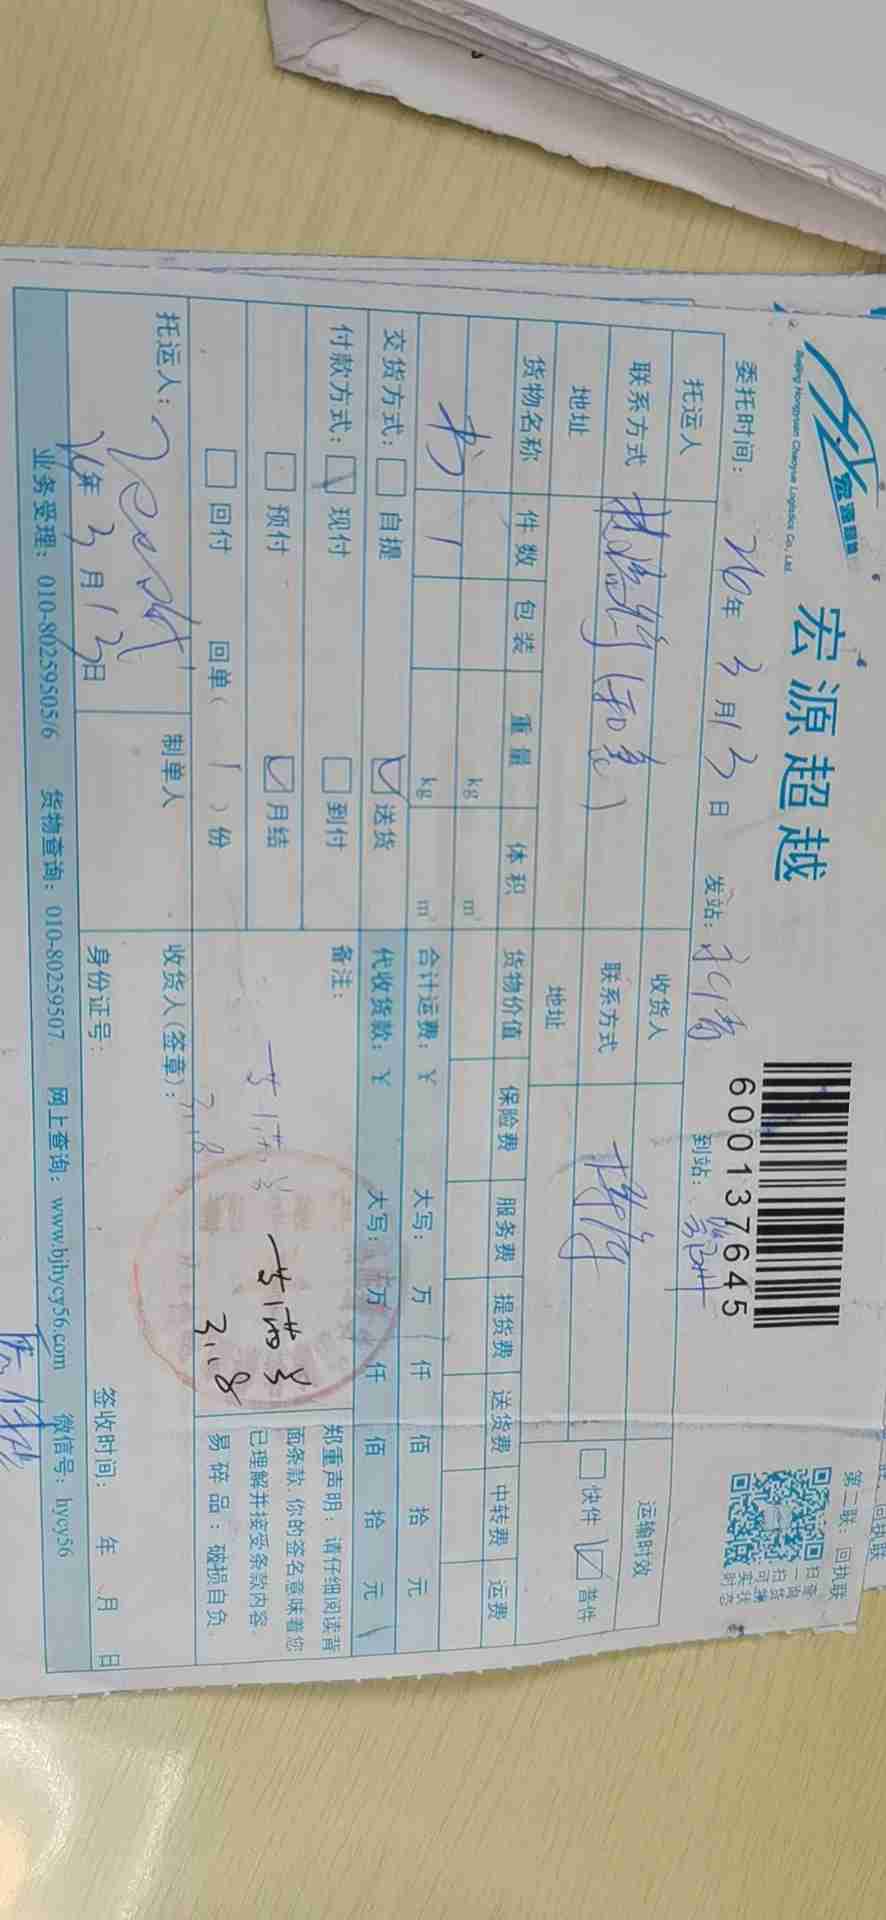 宏源超越
Beijing Hongyuan Chaoyue Logistics Co., Ltd.
宏源超越
600137645
第二联:回执联
扫一扫
查询货物
可实时状态
委托时间: 26年 3月13日 发站: 到站:
托运人 收货人 运输时效
联系方式 联系方式 快件 普件
地址 地址
货物名称 件数 包装 重量 体积 货物价值 保险费 服务费 提货费 送货费 中转费 运费
kg m³
书 1 kg m³ 合计运费:¥ 大写: 万 仟 佰 拾 元
交货方式: 自提 送货 代收货款:¥ 大写: 万 仟 佰 拾 元
付款方式: 现付 到付 备注:
预付 月结
回付 回单( 1 )份
3.18
3.18
郑重声明:请仔细阅读背
面条款,你的签名意味着您
已理解并接受条款内容。
易碎品:破损自负
托运人: 制单人 收货人(签章):
26年 3月13日 身份证号: 签收时间: 年 月 日
业务受理:010-80259505/6 货物查询:010-80259507 网上查询:www.bjhycy56.com 微信号:hycy56